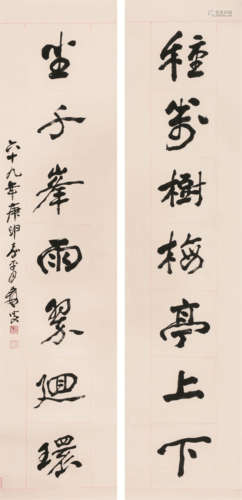 種萬樹梅亭上下
坐千峯雨翠迴環
六十九年庚申